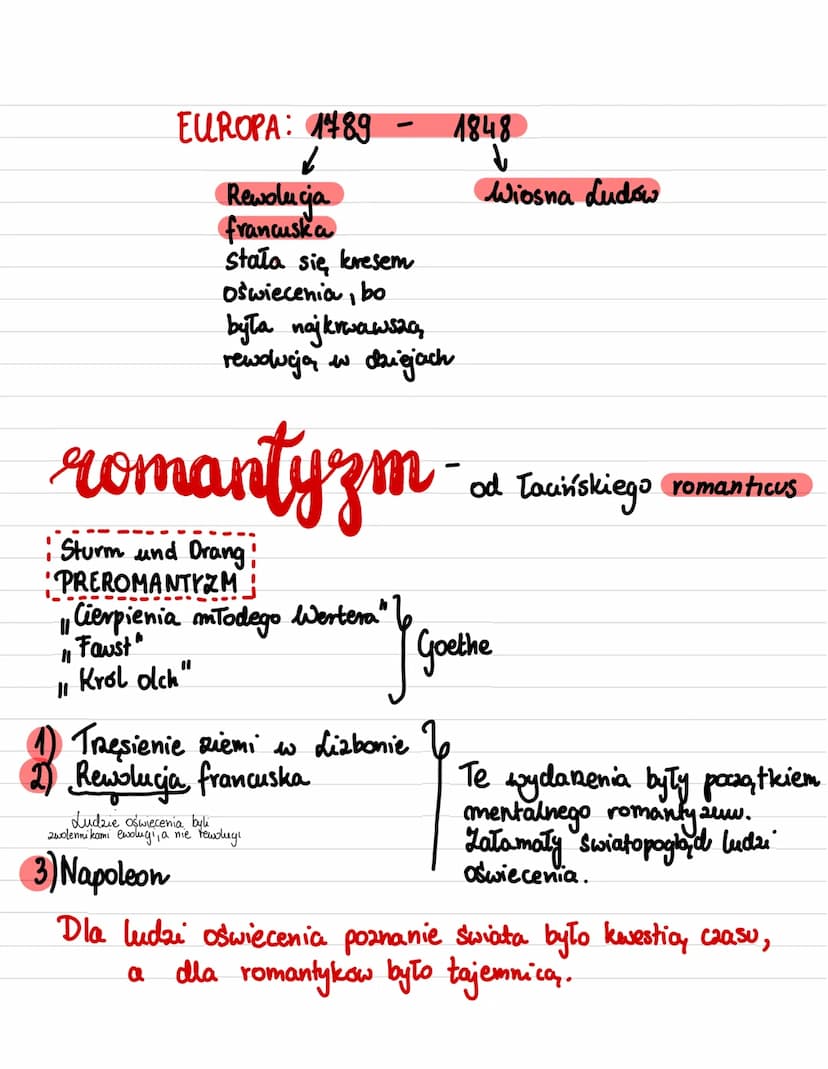 EUROPA: 1789 - 1848
Rewolucja
francuska
stała się kresem
oświecenia, bo
była najkrwawszą
rewolucją w dziejach
Wiosna Ludów
romantyzm - od łacińskiego romanticus
Sturm und Drang
PREROMANTYZM
„Cierpienia młodego Wertera"
„Faust"
„Król olch"
Goethe
1) Trzęsienie ziemi w Lizbonie
2) Rewolucja francuska
Ludzie oświecenia byli
zwolennikami ewolucji, a nie rewolucji
3) Napoleon
Te wydarzenia były początkiem
mentalnego romantyzmu.
Załamały światopogląd ludzi
oświecenia.
Dla ludzi oświecenia poznanie świata było kwestią czasu,
a dla romantyków było tajemnicą.